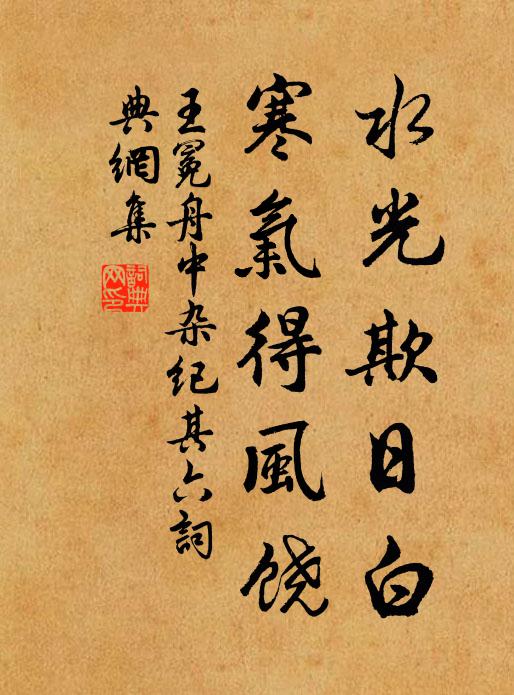 水光欺日白
寒氣得風饶
王冕舟中杂纪其六詞
典網集
詞典网印